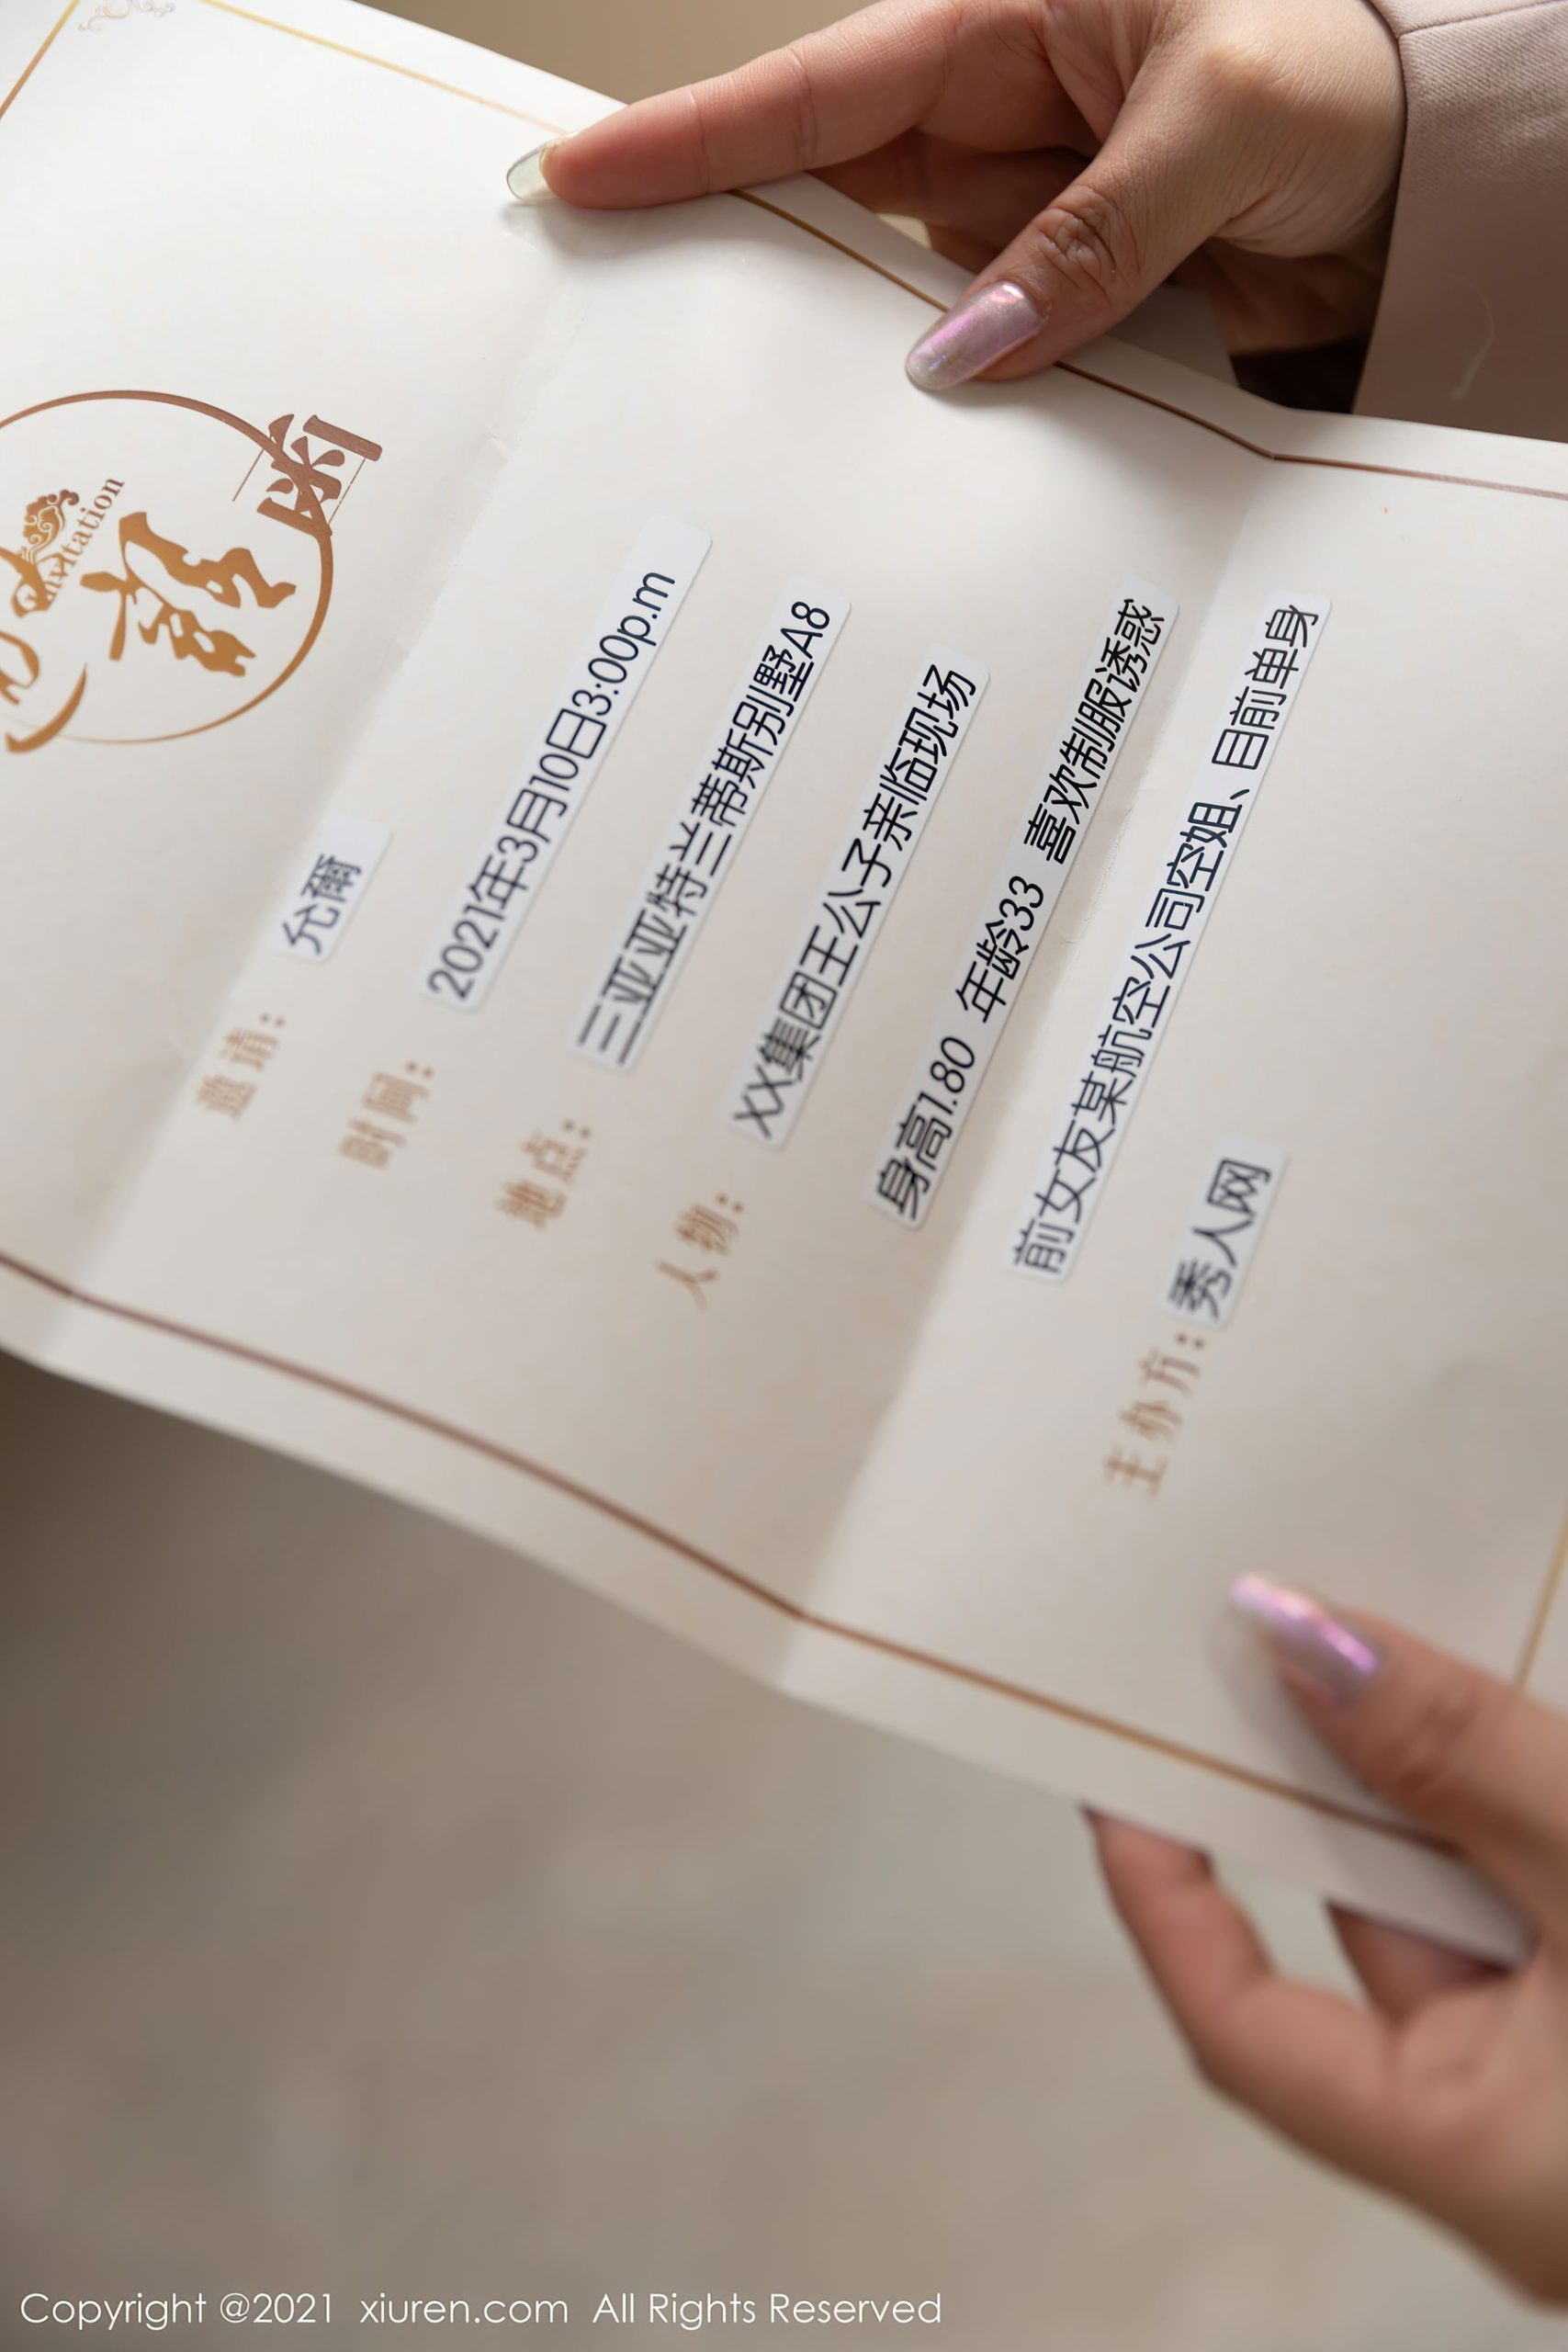 Invitation
邀请函
邀请：允爾
时间：2021年3月10日3:00p.m
地点：三亚亚特兰蒂斯别墅A8
人物：XX集团王公子亲临现场
身高1.80 年龄33 喜欢制服诱惑
前女友某航空公司空姐、目前单身
主办方：秀人网
Copyright @2021 xiuren.com All Rights Reserved